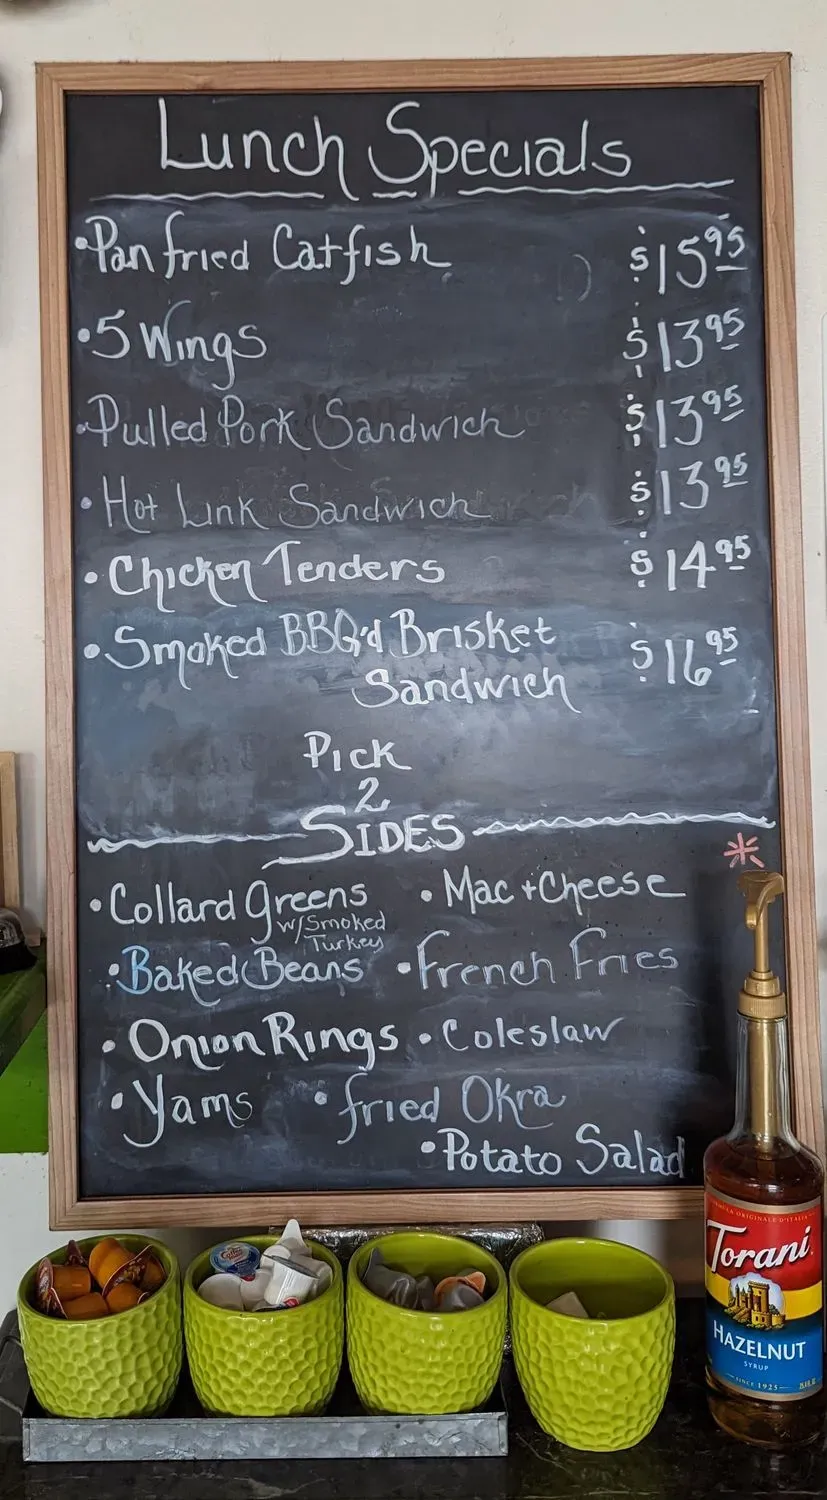 Lunch Specials
•Pan fried Catfish $15.95
•5 Wings $13.95
•Pulled Pork Sandwich $13.95
•Hot Link Sandwich $13.95
•Chicken Tenders $14.95
•Smoked BBQ'd Brisket $16.95
Sandwich
Pick
2
SIDES
•Collard greens •Mac + Cheese
w/Smoked
Turkey
•Baked Beans •French Fries
•Onion Rings •Coleslaw
•Yams •fried Okra
•Potato Salad
Torani
HAZELNUT
SYRUP
SINCE 1925